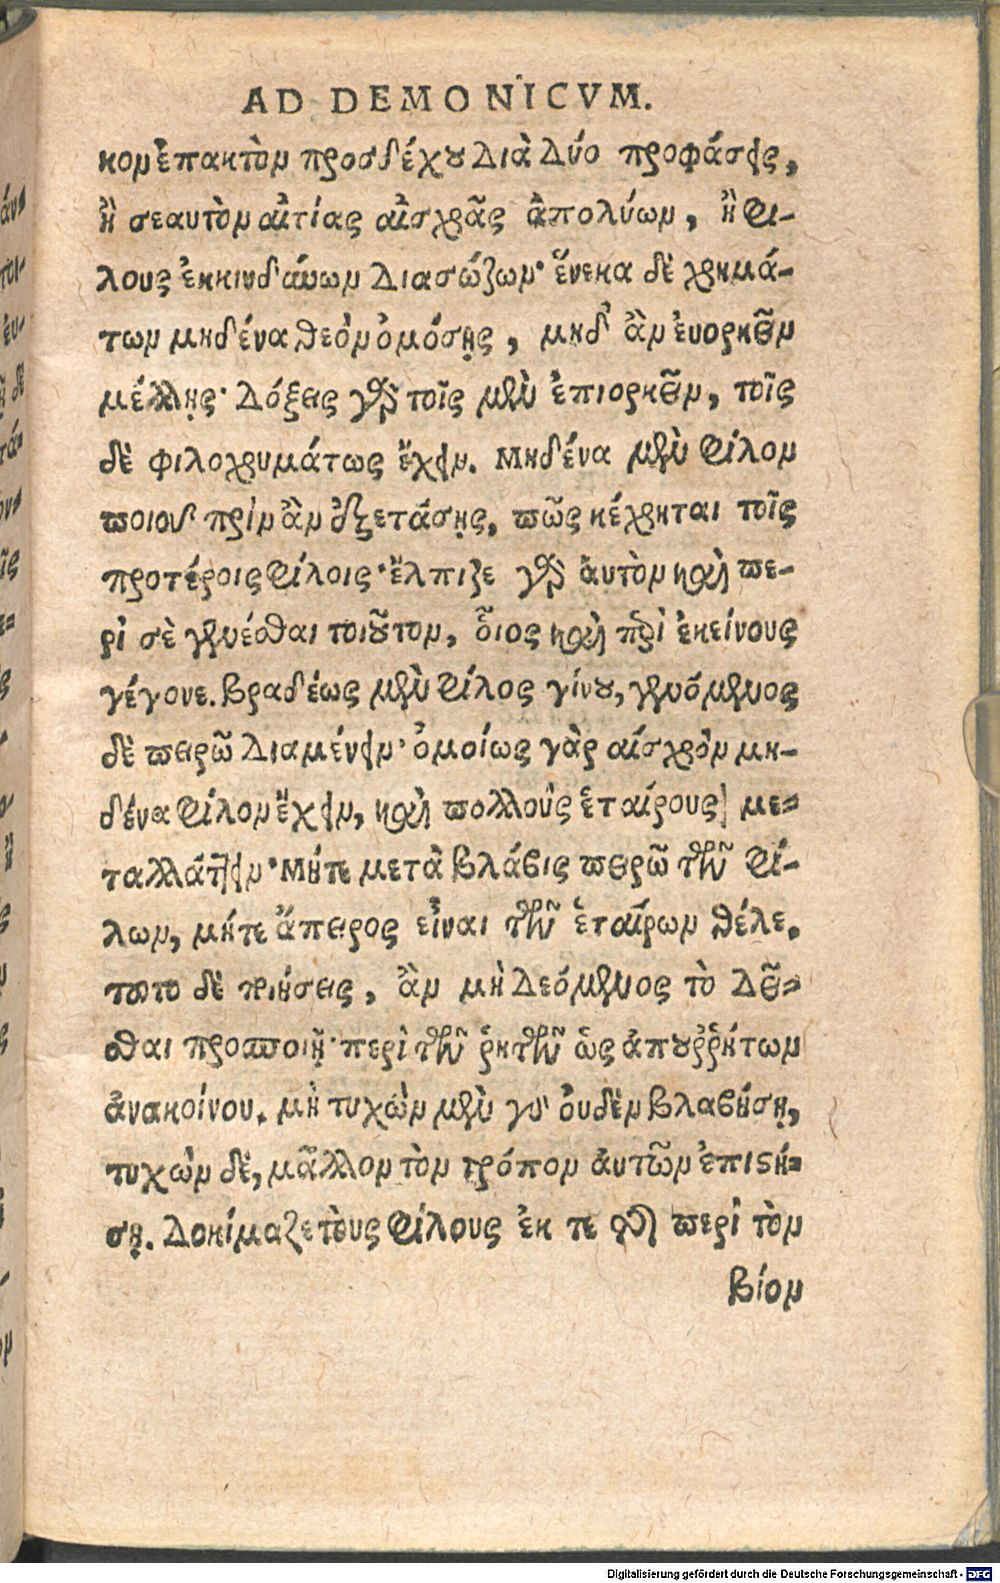 AD DEMONICVM.
κον ἐπακτὸν προσδέχου διὰ δύο προφάσεις,
ἢ σεαυτὸν αἰτίας αἰσχρᾶς ἀπολύων, ἢ φί-
λους ἐκ κινδύνων διασώζων· ἕνεκα δὲ χρημά-
των μηδένα θεὸν ὀμόσης, μηδ' ἂν ἐυορκεῖν
μέλλης· δόξεις γὰρ τοῖς μὲν ἐπιορκεῖν, τοῖς
δὲ φιλοχρημάτως ἔχειν. Μηδένα μὲν φίλον
ποιοῦ πρὶν ἂν ἐξετάσης, πῶς κέχρηται τοῖς
προτέροις φίλοις· ἔλπιζε γὰρ ἀυτὸν καὶ πε-
ρὶ σὲ γενέσθαι τοιοῦτον, οἷος καὶ περὶ ἐκείνους
γέγονε. Βραδέως μὲν φίλος γίνου, γενόμενος
δὲ πειρῶ διαμένειν· ὁμοίως γὰρ αἰσχρὸν μη-
δένα φίλον ἔχειν, καὶ πολλοὺς ἑταίρους με-
ταλλάττειν· Μήτε μετὰ βλάβης πειρῶ τῶν φί-
λων, μήτε ἄπειρος εἶναι τῶν ἑταίρων θέλε.
τοῦτο δὲ ποιήσεις, ἂν μὴ δεόμενος τὸ δεῖ-
σθαι προσποιῇ· περὶ τῶν ῥητῶν ὡς ἀποῤῥήτων
ἀνακοίνου. μὴ τυχὼν μὲν γὰρ οὐδὲν βλαβήσῃ,
τυχὼν δὲ, μᾶλλον τὸν τρόπον ἀυτῶν ἐπιστή-
σῃ. Δοκίμαζε τοὺς φίλους ἔκ τε τῆς περὶ τὸν
βίον
Digitalisierung gefördert durch die Deutsche Forschungsgemeinschaft - DFG